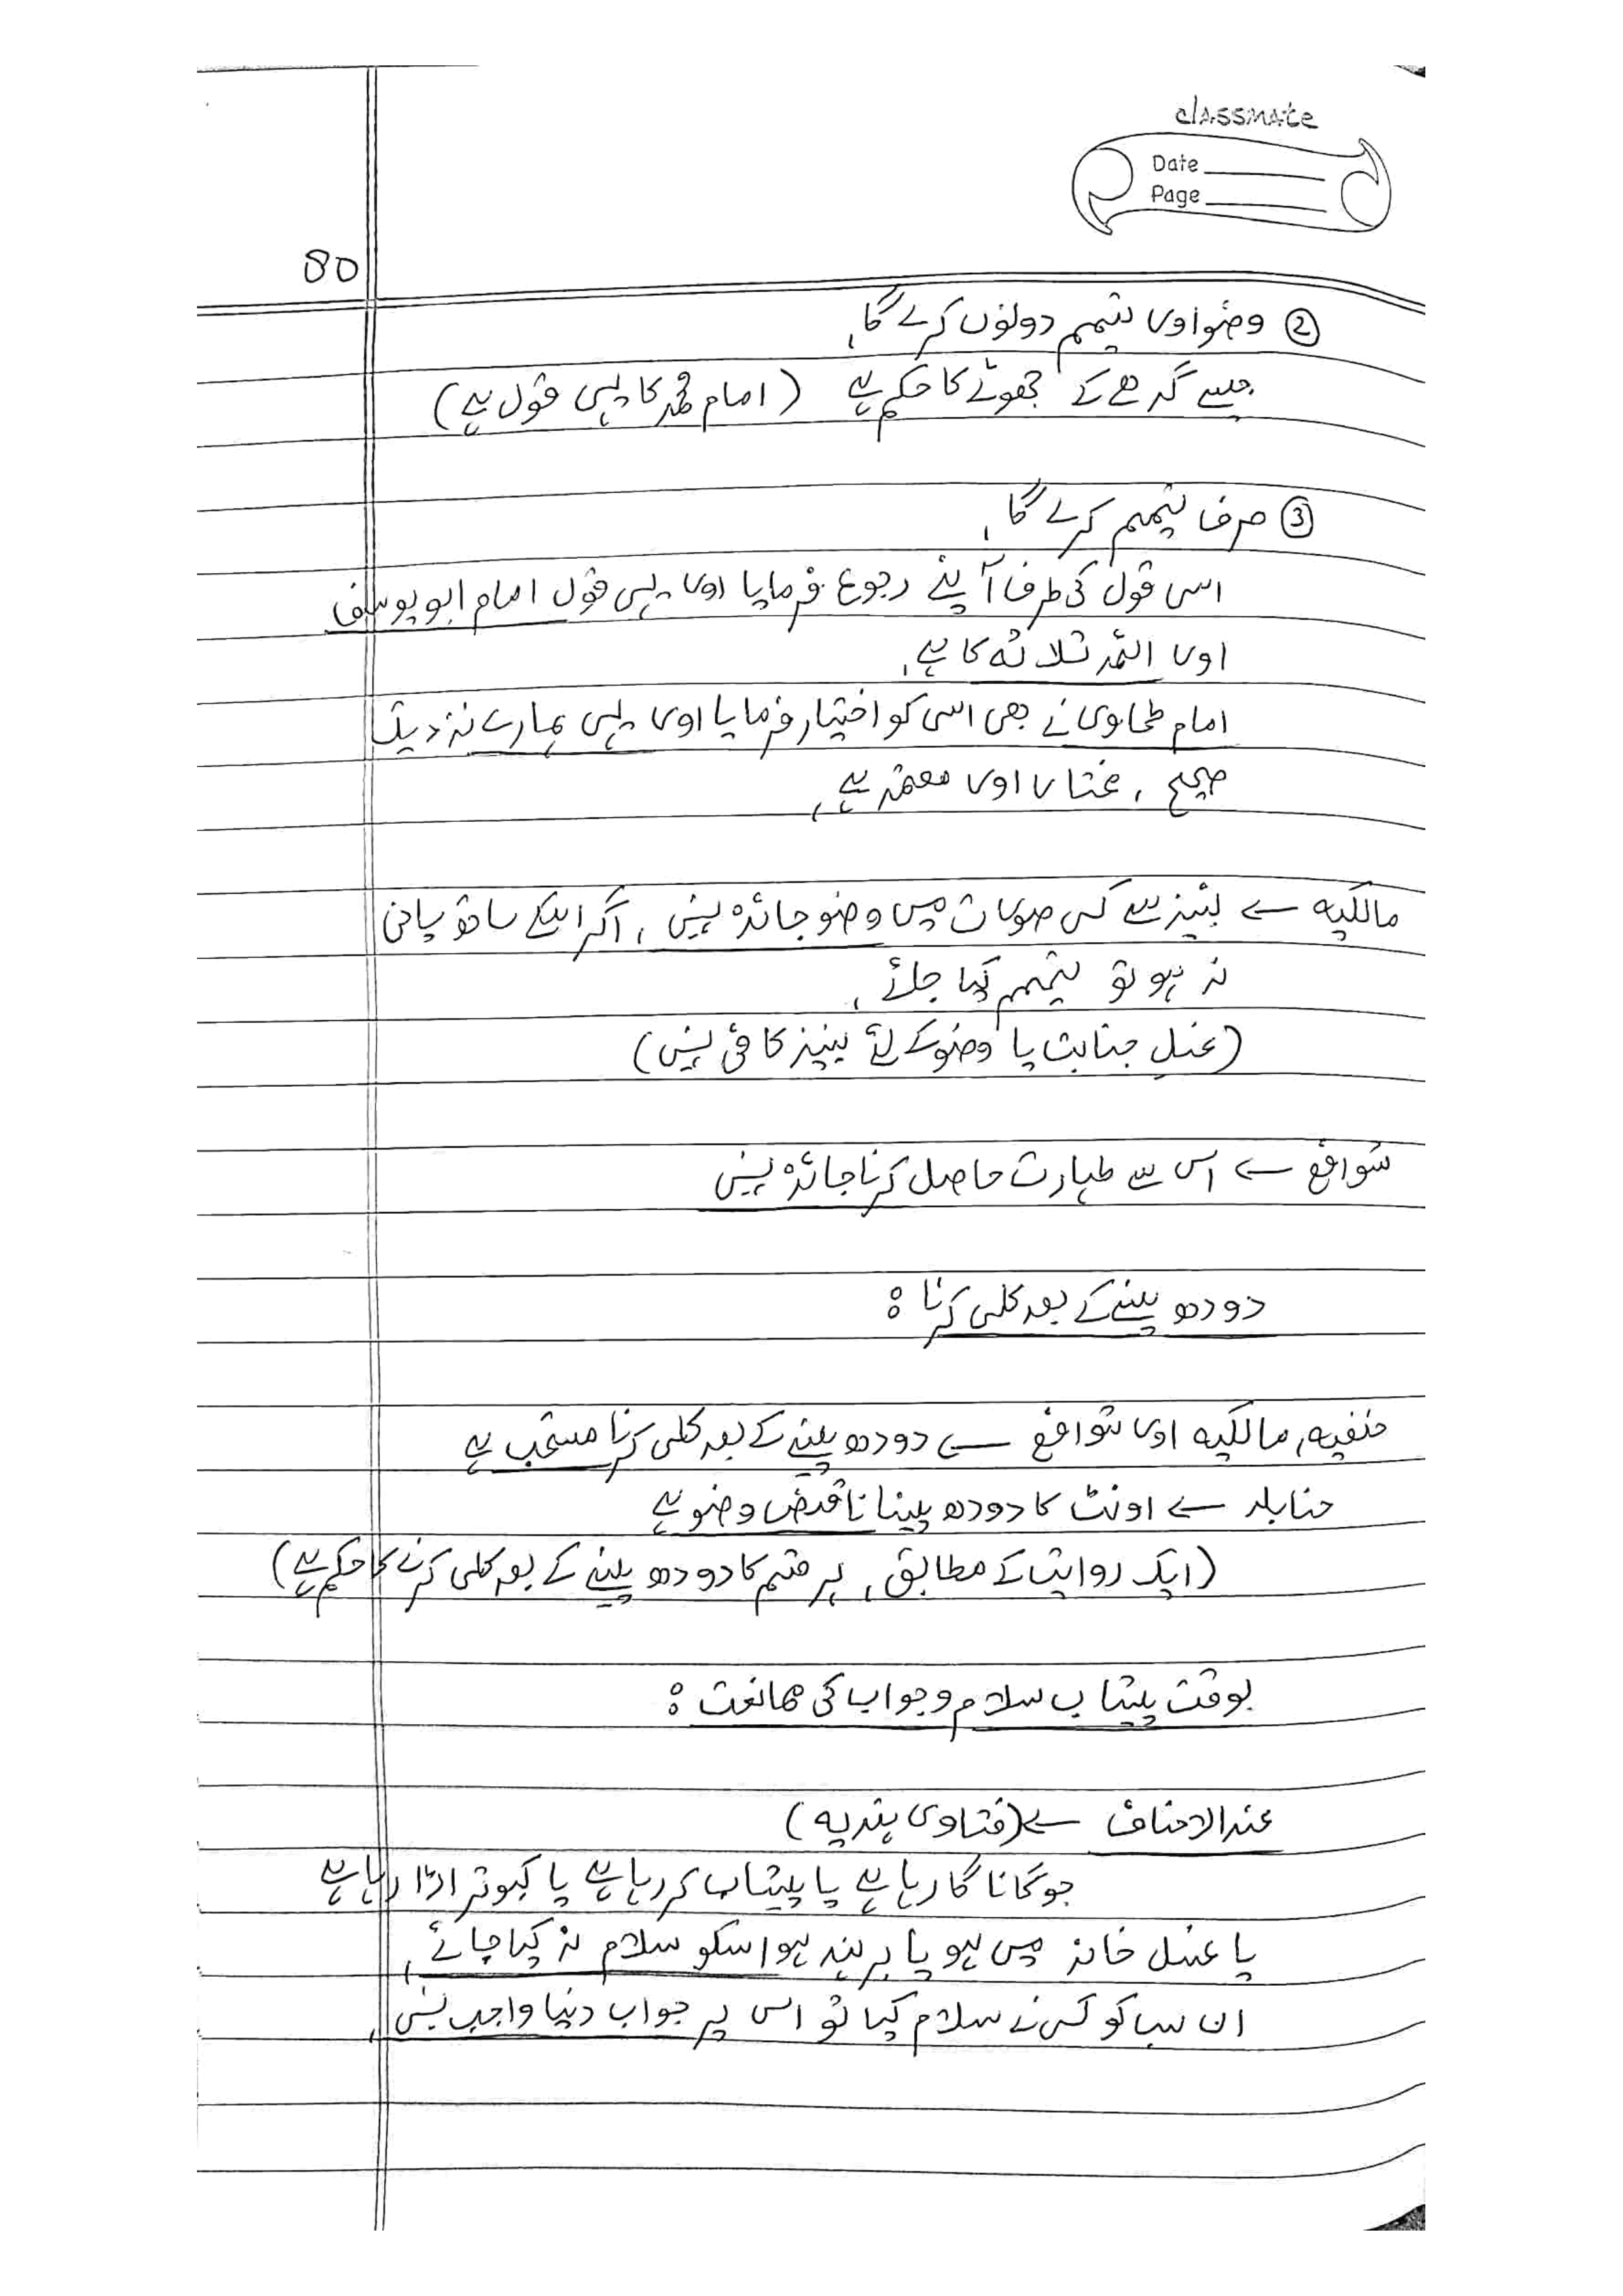 classmate
Date
Page
80
② وضو اور تیمم دونوں کرے گا،
جیسے گدھے کے جھوٹے کا حکم ہے (امام محمد کا یہی قول ہے)
③ صرف تیمم کرے گا،
اسی قول کی طرف آپ نے رجوع فرمایا اور یہی قول امام ابو یوسف
اور ائمہ ثلاثہ کا ہے،
امام طحاوی نے بھی اسی کو اختیار فرمایا اور یہی ہمارے نزدیک
صحیح، مختار اور معتمد ہے،
مالکیہ ← نبیذ سے کسی صورت میں وضو جائز نہیں، اگر اسکے ساتھ پانی
نہ ہو تو تیمم کیا جائے،
(غسل جنابت یا وضو کے لئے نبیذ کافی نہیں)
شوافع ← اس سے طہارت حاصل کرنا جائز نہیں
دودھ پینے کے بعد کلی کرنا :
حنفیہ، مالکیہ اور شوافع ← دودھ پینے کے بعد کلی کرنا مستحب ہے
حنابلہ ← اونٹ کا دودھ پینا ناقض وضو ہے
(ایک روایت کے مطابق، ہر قسم کا دودھ پینے کے بعد کلی کرنے کا حکم ہے)
بوقت پیشاب سلام و جواب کی ممانعت :
عند الاحناف ← (فتاوی ہندیہ)
جو گانا گا رہا ہے یا پیشاب کر رہا ہے یا کبوتر اڑا رہا ہے
یا غسل خانہ میں ہو یا برہنہ ہو اسکو سلام نہ کیا جائے،
ان سب کو کسی نے سلام کیا تو اس پر جواب دینا واجب نہیں،